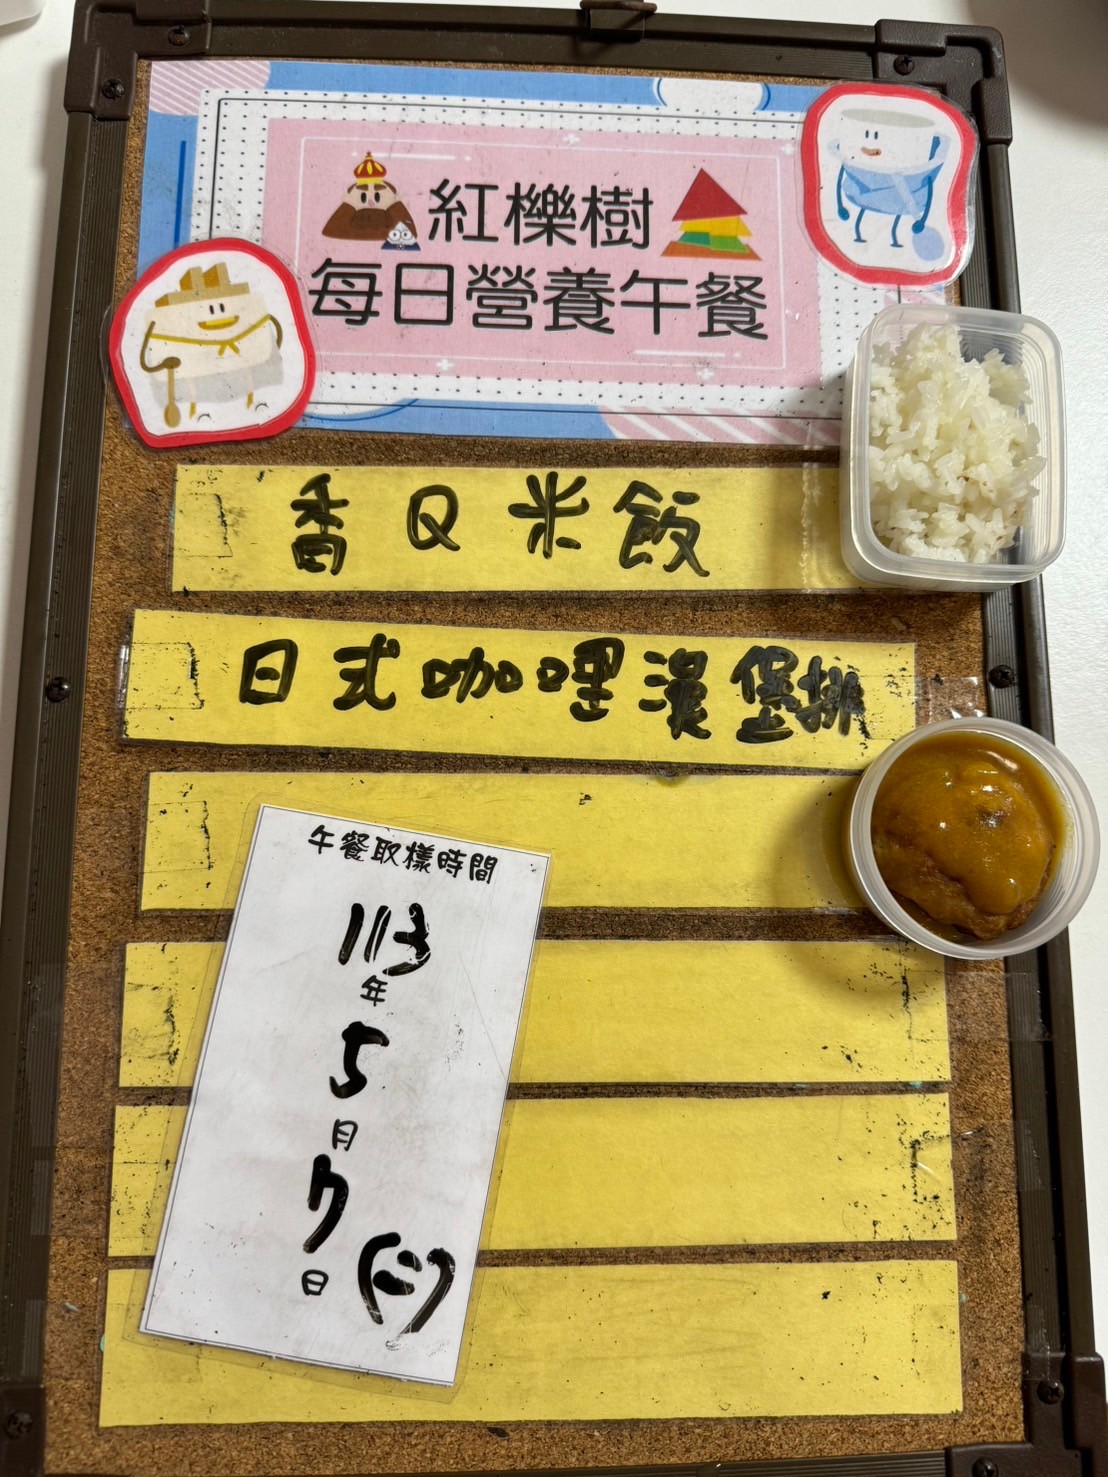 紅櫟樹
每日營養午餐
香Q米飯
日式咖哩漢堡排
午餐取樣時間
113
年
5
月
7
日 (二)